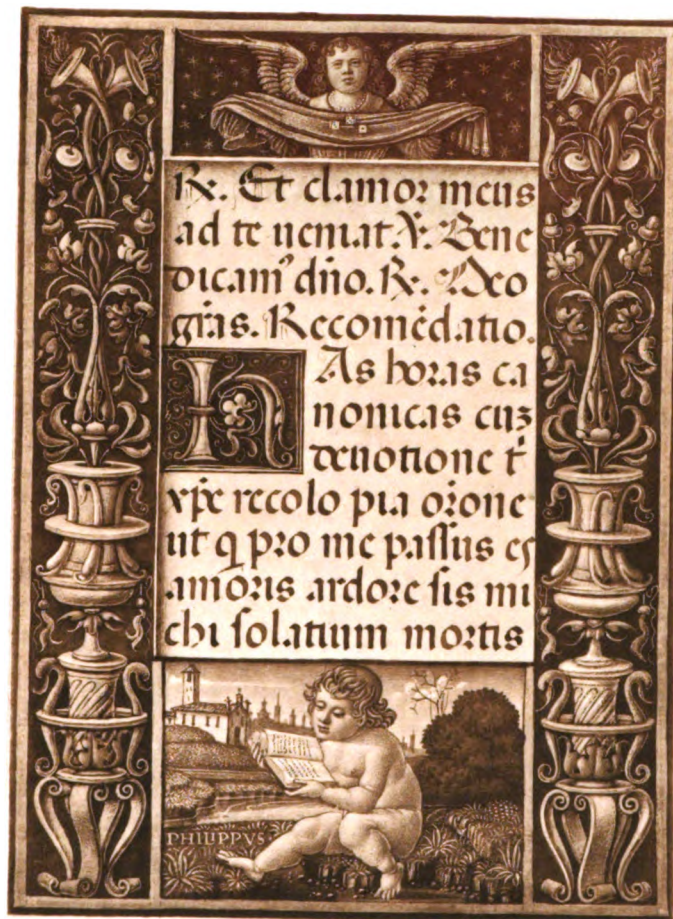 ℟. Et clamor meus
ad te ueniat. ℣. Bene
dicam᾽ dn̄o. ℟. Deo
gr̄as. Recomēdatio.
HAs horas ca
nonicas cuȝ
deuotione t̄
xp̄e recolo pia or̄one
ut q pro me passus es
amoris ardore sis mi
chi solatium mortis
PHILIPPVS